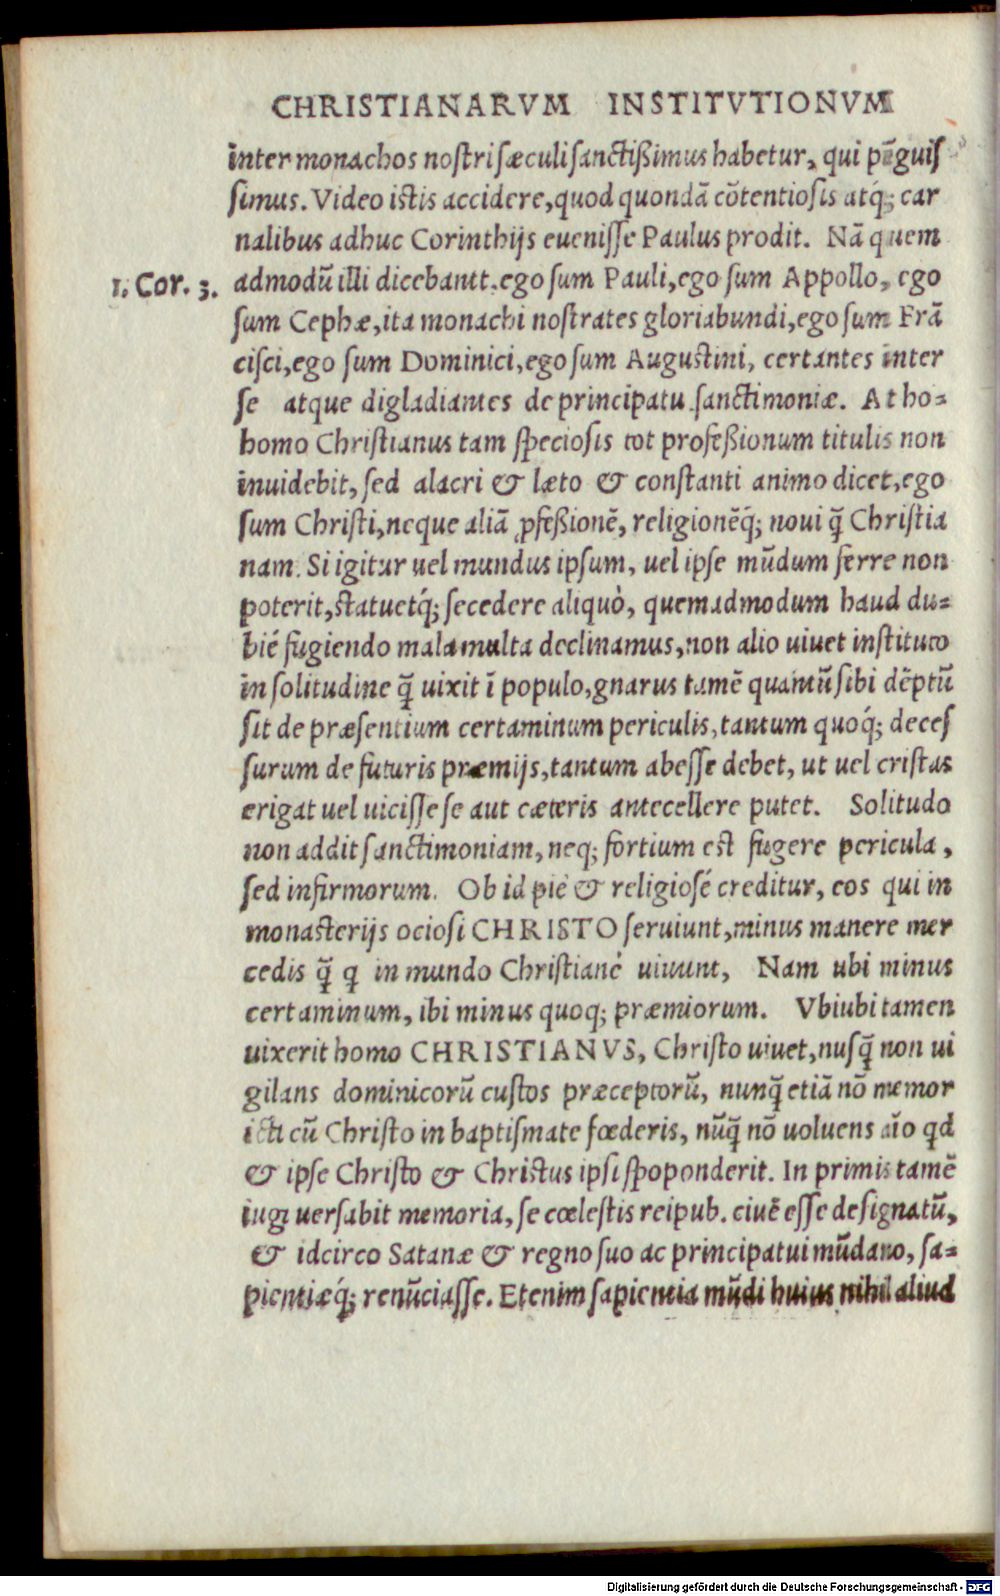 CHRISTIANARVM INSTITVTIONVM
inter monachos nostri sæculi sanctißimus habetur, qui pẽguiſ
ſimus. Video istis accidere, quod quondã cõtentioſis atq́; car
nalibus adhuc Corinthijs eueniſſe Paulus prodit. Nã quem
1. Cor. 3. admodũ illi dicebantt. ego ſum Pauli, ego ſum Appollo, ego
ſum Cephæ, ita monachi noſtrates gloriabundi, ego ſum Frã
ciſci, ego ſum Dominici, ego ſum Auguſtini, certantes inter
ſe atque digladiantes de principatu ſanctimoniæ. At ho=
homo Chriſtianus tam ſpecioſis tot profeßionum titulis non
inuidebit, ſed alacri & læto & conſtanti animo dicet, ego
ſum Chriſti, neque aliã ꝓfeßionẽ, religionẽq́; noui q̃ Chriſtia
nam. Si igitur uel mundus ipſum, uel ipſe mũdum ferre non
poterit, ſtatuetq́; ſecedere aliquò, quemadmodum haud du=
biè fugiendo mala multa declinamus, non alio uiuet inſtituto
in ſolitudine q̃ uixit ĩ populo, gnarus tamẽ quantũ ſibi dẽptũ
ſit de præſentium certaminum periculis, tantum quoq́; deceſ
ſurum de futuris præmijs, tantum abeſſe debet, ut uel criſtas
erigat uel uiciſſe ſe aut cæteris antecellere putet. Solitudo
non addit ſanctimoniam, neq; fortium eſt fugere pericula,
ſed infirmorum. Ob id piè & religioſé creditur, eos qui in
monaſterijs ocioſi CHRISTO ſeruiunt, minus manere mer
cedis q̃ q in mundo Chriſtianè uiuunt, Nam ubi minus
certaminum, ibi minus quoq; præmiorum. Vbiubi tamen
uixerit homo CHRISTIANVS, Chriſto uiuet, nuſq̃ non ui
gilans dominicorũ cuſtos præceptorũ, nunq̃ etiã nõ memor
icti cũ Chriſto in baptiſmate fœderis, nũq̃ nõ uoluens aĩo qd
& ipſe Chriſto & Chriſtus ipſi ſpoponderit. In primis tamẽ
iugi uerſabit memoria, ſe cœleſtis reipub. ciuẽ eſſe deſignatũ,
& idcirco Satanæ & regno ſuo ac principatui mũdano, ſa=
pientiæq́; renũciaſſe. Etenim ſapientia mũdi huius nihil aliud
Digitalisierung gefördert durch die Deutsche Forschungsgemeinschaft - DFG